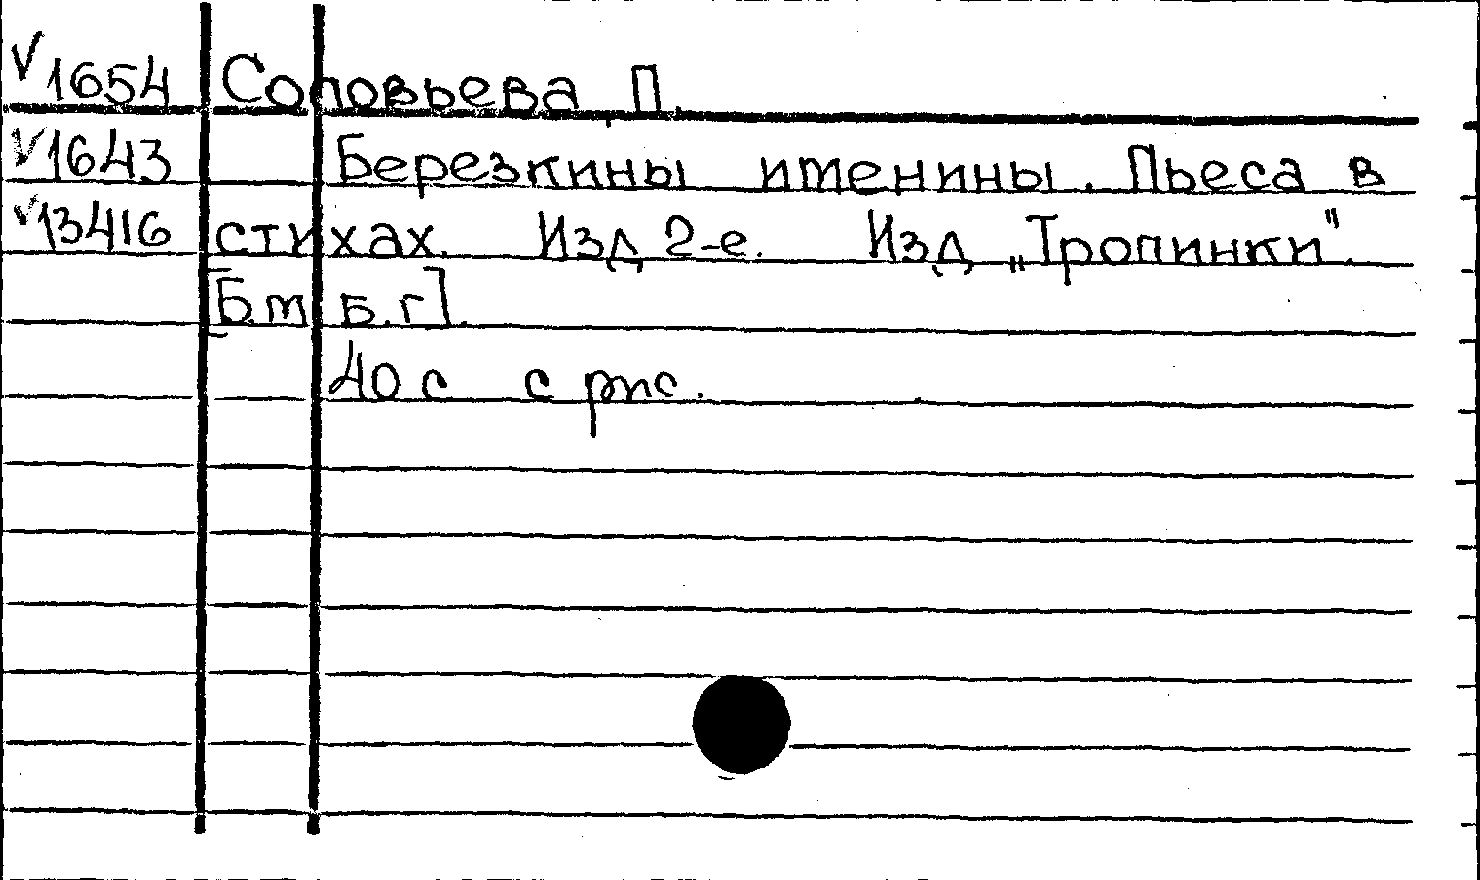 V 1654 Соловьева П.
V 1643 Березкины именины. Пьеса в
V 13416 стихах. Изд 2-е. Изд „Тропинки".
[Б.м Б.г].
40 с с рис.